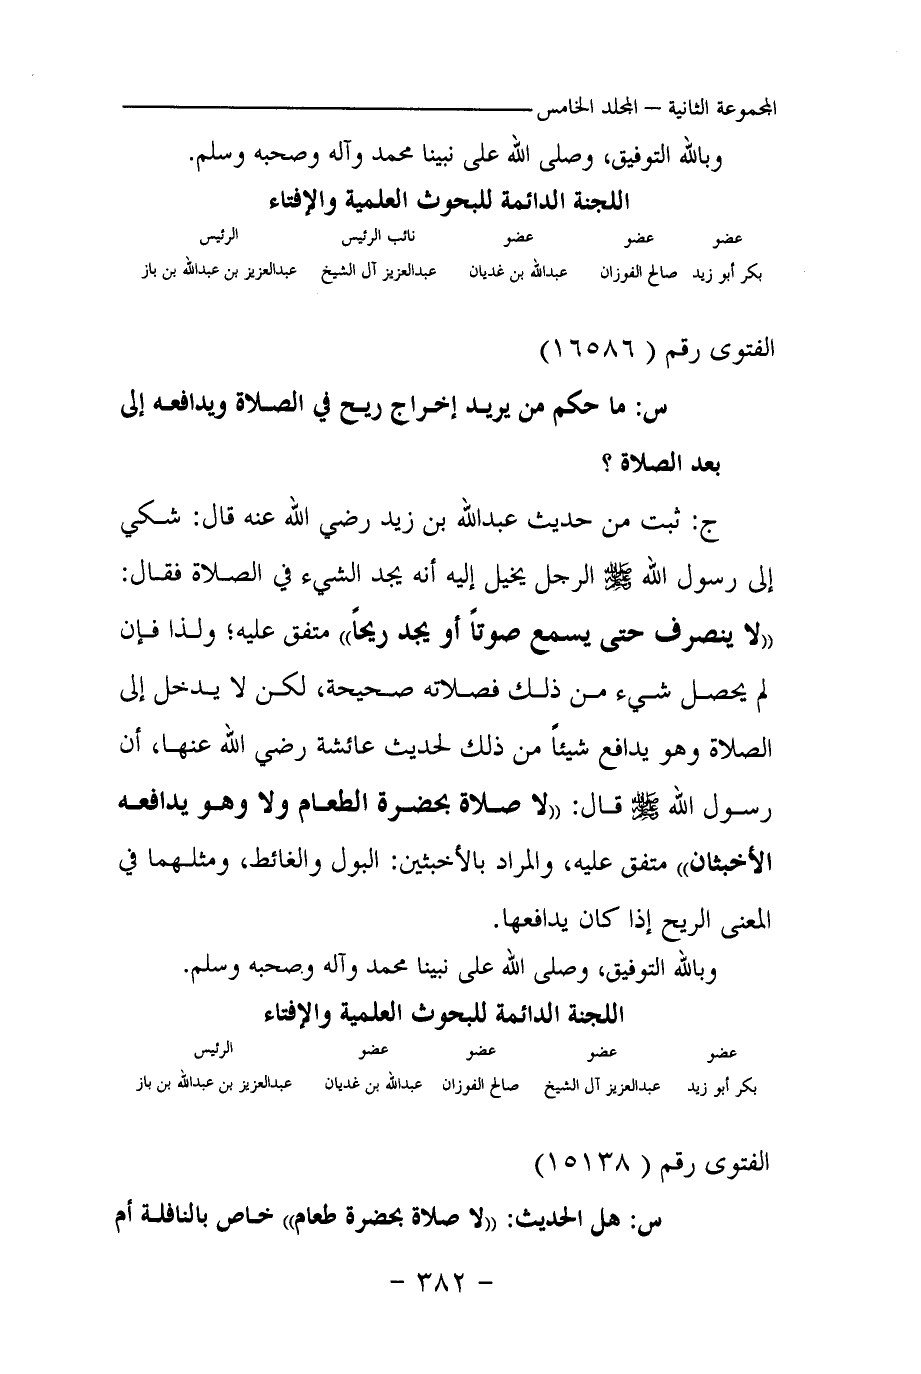 المجموعة الثانية – المجلد الخامس
وبالله التوفيق، وصلى الله على نبينا محمد وآله وصحبه وسلم.
اللجنة الدائمة للبحوث العلمية والإفتاء
عضو عضو عضو نائب الرئيس الرئيس
بكر أبو زيد صالح الفوزان عبدالله بن غديان عبدالعزيز آل الشيخ عبدالعزيز بن عبدالله بن باز
الفتوى رقم ( ١٦٥٨٦)
س: ما حكم من يريد إخراج ريح في الصلاة ويدافعه إلى
بعد الصلاة ؟
ج: ثبت من حديث عبدالله بن زيد رضي الله عنه قال: شكي
إلى رسول الله ﷺ الرجل يخيل إليه أنه يجد الشيء في الصلاة فقال:
((لا ينصرف حتى يسمع صوتاً أو يجد ريحاً)) متفق عليه؛ ولذا فإن
لم يحصل شيء من ذلك فصلاته صحيحة، لكن لا يدخل إلى
الصلاة وهو يدافع شيئاً من ذلك لحديث عائشة رضي الله عنها، أن
رسول الله ﷺ قال: ((لا صلاة بحضرة الطعام ولا وهو يدافعه
الأخبثان)) متفق عليه، والمراد بالأخبثين: البول والغائط، ومثلهما في
المعنى الريح إذا كان يدافعها.
وبالله التوفيق، وصلى الله على نبينا محمد وآله وصحبه وسلم.
اللجنة الدائمة للبحوث العلمية والإفتاء
عضو عضو عضو عضو الرئيس
بكر أبو زيد عبدالعزيز آل الشيخ صالح الفوزان عبدالله بن غديان عبدالعزيز بن عبدالله بن باز
الفتوى رقم ( ١٥١٣٨)
س: هل الحديث: ((لا صلاة بحضرة طعام)) خاص بالنافلة أم
- ٣٨٢ -